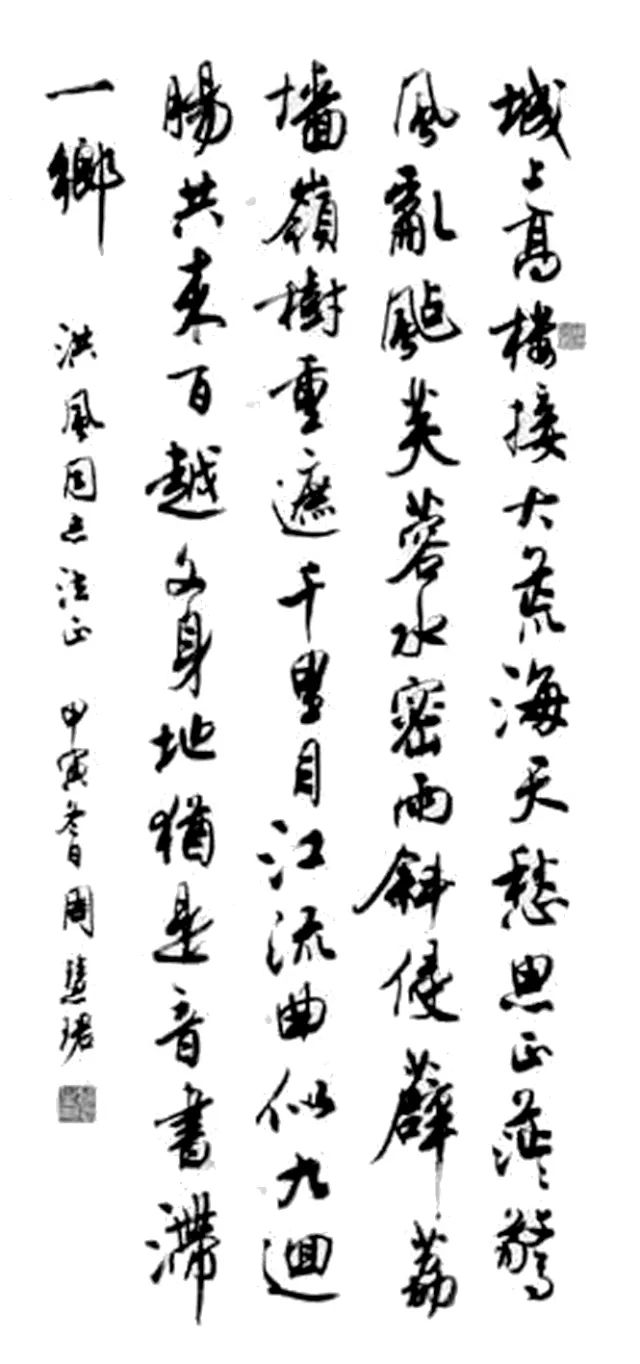 城上高樓接大荒海天愁思正茫〻驚
風亂颭芙蓉水密雨斜侵薜荔
墻嶺樹重遮千里目江流曲似九迴
腸共來百越文身地猶是音書滯
一鄉
洪風同志法正 甲寅冬日 周慧珺